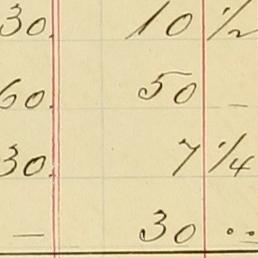 30. 10 1/2
60. 50 –
30. 7 1/4
— 30 ..